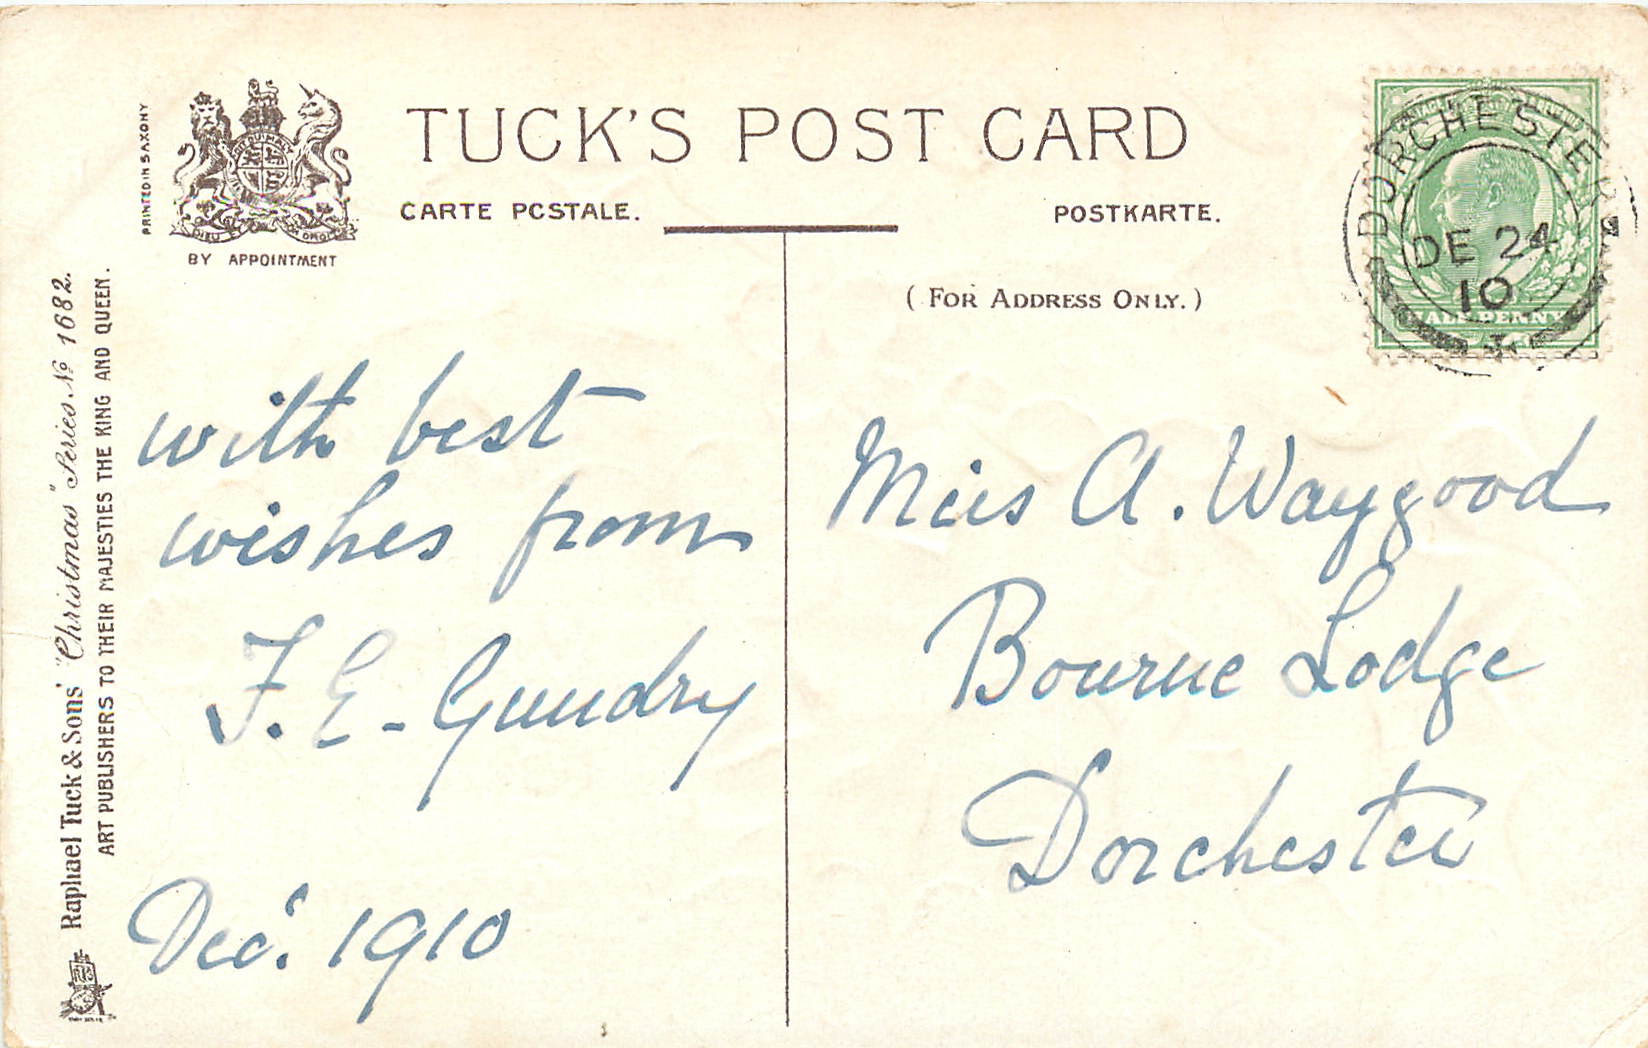 TUCK'S POST CARD
CARTE POSTALE.
POSTKARTE.
(FOR ADDRESS ONLY.)
PRINTED IN SAXONY
DIEU ET MON DROIT
BY APPOINTMENT
Raphael Tuck & Sons' "Christmas" Series. No 1682.
ART PUBLISHERS TO THEIR MAJESTIES THE KING AND QUEEN.
with best
wishes from
F. E. Gundry
Decr. 1910
DORCHESTER
DE 24
10
HALFPENNY
Miss A. Waygood
Bourne Lodge
Dorchester